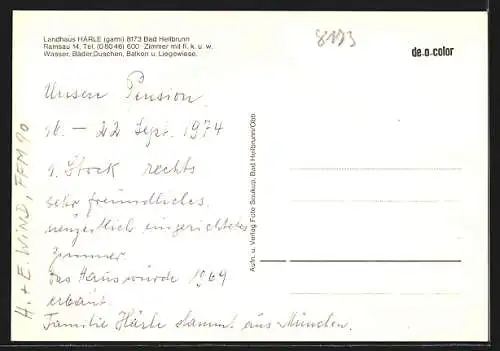 Landhaus HÄRLE (garni) 8173 Bad Heilbrunn
Ramsau 14, Tel. (08046) 600 Zimmer mit fl. k. u. w.
Wasser, Bäder, Duschen, Balkon u. Liegewiese.
8173
de o color
Unsere Pension
16. – 22 Sept. 1974
1. Stock rechts
sehr freundliches,
neuzeitlich eingerichtetes
Zimmer
Das Haus wurde 1969
erbaut.
Familie Härle stammt aus München.
H. + E. WIND, FFM 90
Aufn. u. Verlag Foto Soukup, Bad Heilbrunn/Obb.